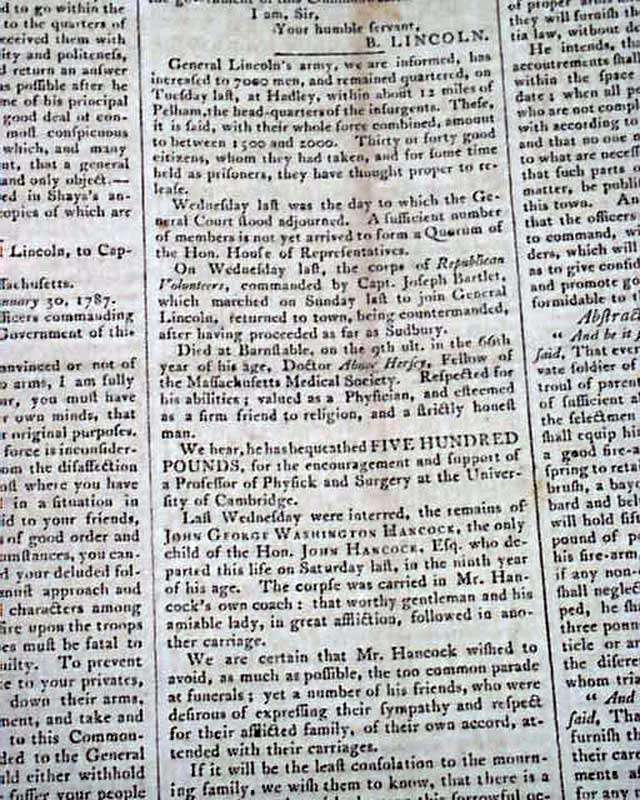 d to go within the
to the quarters of
eceived them with
ity and politeness,
d return an answer
as possible after he
me of his principal
good deal of con-
most conspicuous
which, and many
nt, that a general
and only object.—
ed in Shays's an-
copies of which are
Lincoln, to Cap-
ssachusetts.
nuary 30, 1787.
fficers commanding
Government of this
onvinced or not of
o arms, I am fully
ar, you must have
r own minds, that
r original purposes.
force is inconsider-
om the disaffection
ost where you have
in a situation in
id to your friends,
s of good order and
umstances, you can-
d your deluded fol-
annot approach and
characters among
fire upon the troops
es must be fatal to
uilty. To prevent
te to your privates,
down their arms,
ment, and take and
to this Common-
ded to the General
uld either withhold
suffer your people
I am, Sir,
Your humble servant,
B. LINCOLN.
General Lincoln's army, we are informed, has
increased to 7000 men, and remained quartered, on
Tuesday last, at Hadley, within about 12 miles of
Pelham, the head-quarters of the insurgents. These,
it is said, with their whole force combined, amount
to between 1500 and 2000. Thirty or forty good
citizens, whom they had taken, and for some time
held as prisoners, they have thought proper to re-
lease.
Wednesday last was the day to which the Ge-
neral Court stood adjourned. A sufficient number
of members is not yet arrived to form a Quorum of
the Hon. House of Representatives.
On Wednesday last, the corps of Republican
Volunteers, commanded by Capt. Joseph Bartlet,
which marched on Sunday last to join General
Lincoln, returned to town, being countermanded,
after having proceeded as far as Sudbury.
Died at Barnstable, on the 9th ult. in the 66th
year of his age, Doctor Abner Hersey, Fellow of
the Massachusetts Medical Society. Respected for
his abilities; valued as a Physician, and esteemed
as a firm friend to religion, and a strictly honest
man.
We hear, he has bequeathed FIVE HUNDRED
POUNDS, for the encouragement and support of
a Professor of Physick and Surgery at the Univer-
sity of Cambridge.
Last Wednesday were interred, the remains of
JOHN GEORGE WASHINGTON HANCOCK, the only
child of the Hon. JOHN HANCOCK, Esq. who de-
parted this life on Saturday last, in the ninth year
of his age. The corpse was carried in Mr. Han-
cock's own coach: that worthy gentleman and his
amiable lady, in great affliction, followed in ano-
ther carriage.
We are certain that Mr. Hancock wished to
avoid, as much as possible, the too common parade
at funerals; yet a number of his friends, who were
desirous of expressing their sympathy and respect
for their afflicted family, of their own accord, at-
tended with their carriages.
If it will be the least consolation to the mourn-
ing family, we wish them to know, that there is a
of proper arms
they will furnish th
tia law, without de
He intends, the
accoutrements shall
within the space
date; when all pe
who are not comp
with according to
and that no one
to what are necess
that such parts o
matter, be publi
this town. An
that the officers
to command, wi
ders, which will
as to give confid
and promote go
formidable to
Abstract
" And be it f
said, That ever
vate soldier of
troul of paren
of sufficient a
the selectmen
shall equip hi
a good fire-a
spring to reta
brush, a bayo
bard and bel
will hold fif
pound of p
his fire-arm
if any non-
shall neglec
ped, he sh
three poun
ticle or an
the discre
whom tria
" And
said, Tha
furnish th
their care
ments a
for any